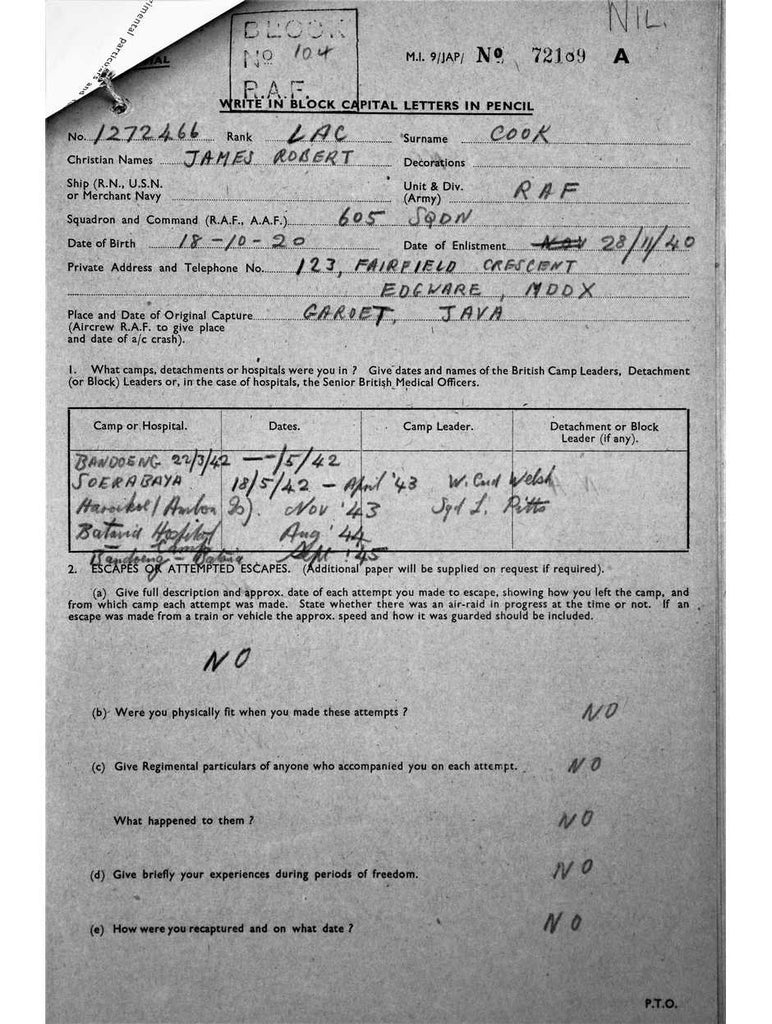 imental particulars
and
IAL
BLOCK
No 104
R.A.F.
NIL.
M.I. 9/JAP/ No 72109 A
WRITE IN BLOCK CAPITAL LETTERS IN PENCIL
No. 1272466 Rank LAC Surname COOK
Christian Names JAMES ROBERT Decorations
Ship (R.N., U.S.N. or Merchant Navy
Unit & Div. (Army) RAF
Squadron and Command (R.A.F., A.A.F.) 605 SQDN
Date of Birth 18-10-20 Date of Enlistment NOV 28/11/40
Private Address and Telephone No. 123, FAIRFIELD CRESCENT
EDGWARE, MDDX
Place and Date of Original Capture GAROET, JAVA
(Aircrew R.A.F. to give place
and date of a/c crash).
1. What camps, detachments or hospitals were you in ? Give dates and names of the British Camp Leaders, Detachment
(or Block) Leaders or, in the case of hospitals, the Senior British Medical Officers.
Camp or Hospital. Dates. Camp Leader. Detachment or Block
Leader (if any).
BANDOENG 22/3/42 — -/5/42
SOERABAYA 18/5/42 - April '43 W. Cmd Welsh
Haroekoe/Ambon Nov '43 Sqd L. Pitts
Batavia Hospital Aug '44
Camp
Bandoeng - Batavia Sept '45
2. ESCAPES OR ATTEMPTED ESCAPES. (Additional paper will be supplied on request if required).
(a) Give full description and approx. date of each attempt you made to escape, showing how you left the camp, and
from which camp each attempt was made. State whether there was an air-raid in progress at the time or not. If an
escape was made from a train or vehicle the approx. speed and how it was guarded should be included.
NO
(b) Were you physically fit when you made these attempts ? NO
(c) Give Regimental particulars of anyone who accompanied you on each attempt. NO
What happened to them ? NO
(d) Give briefly your experiences during periods of freedom. NO
(e) How were you recaptured and on what date ? NO
P.T.O.